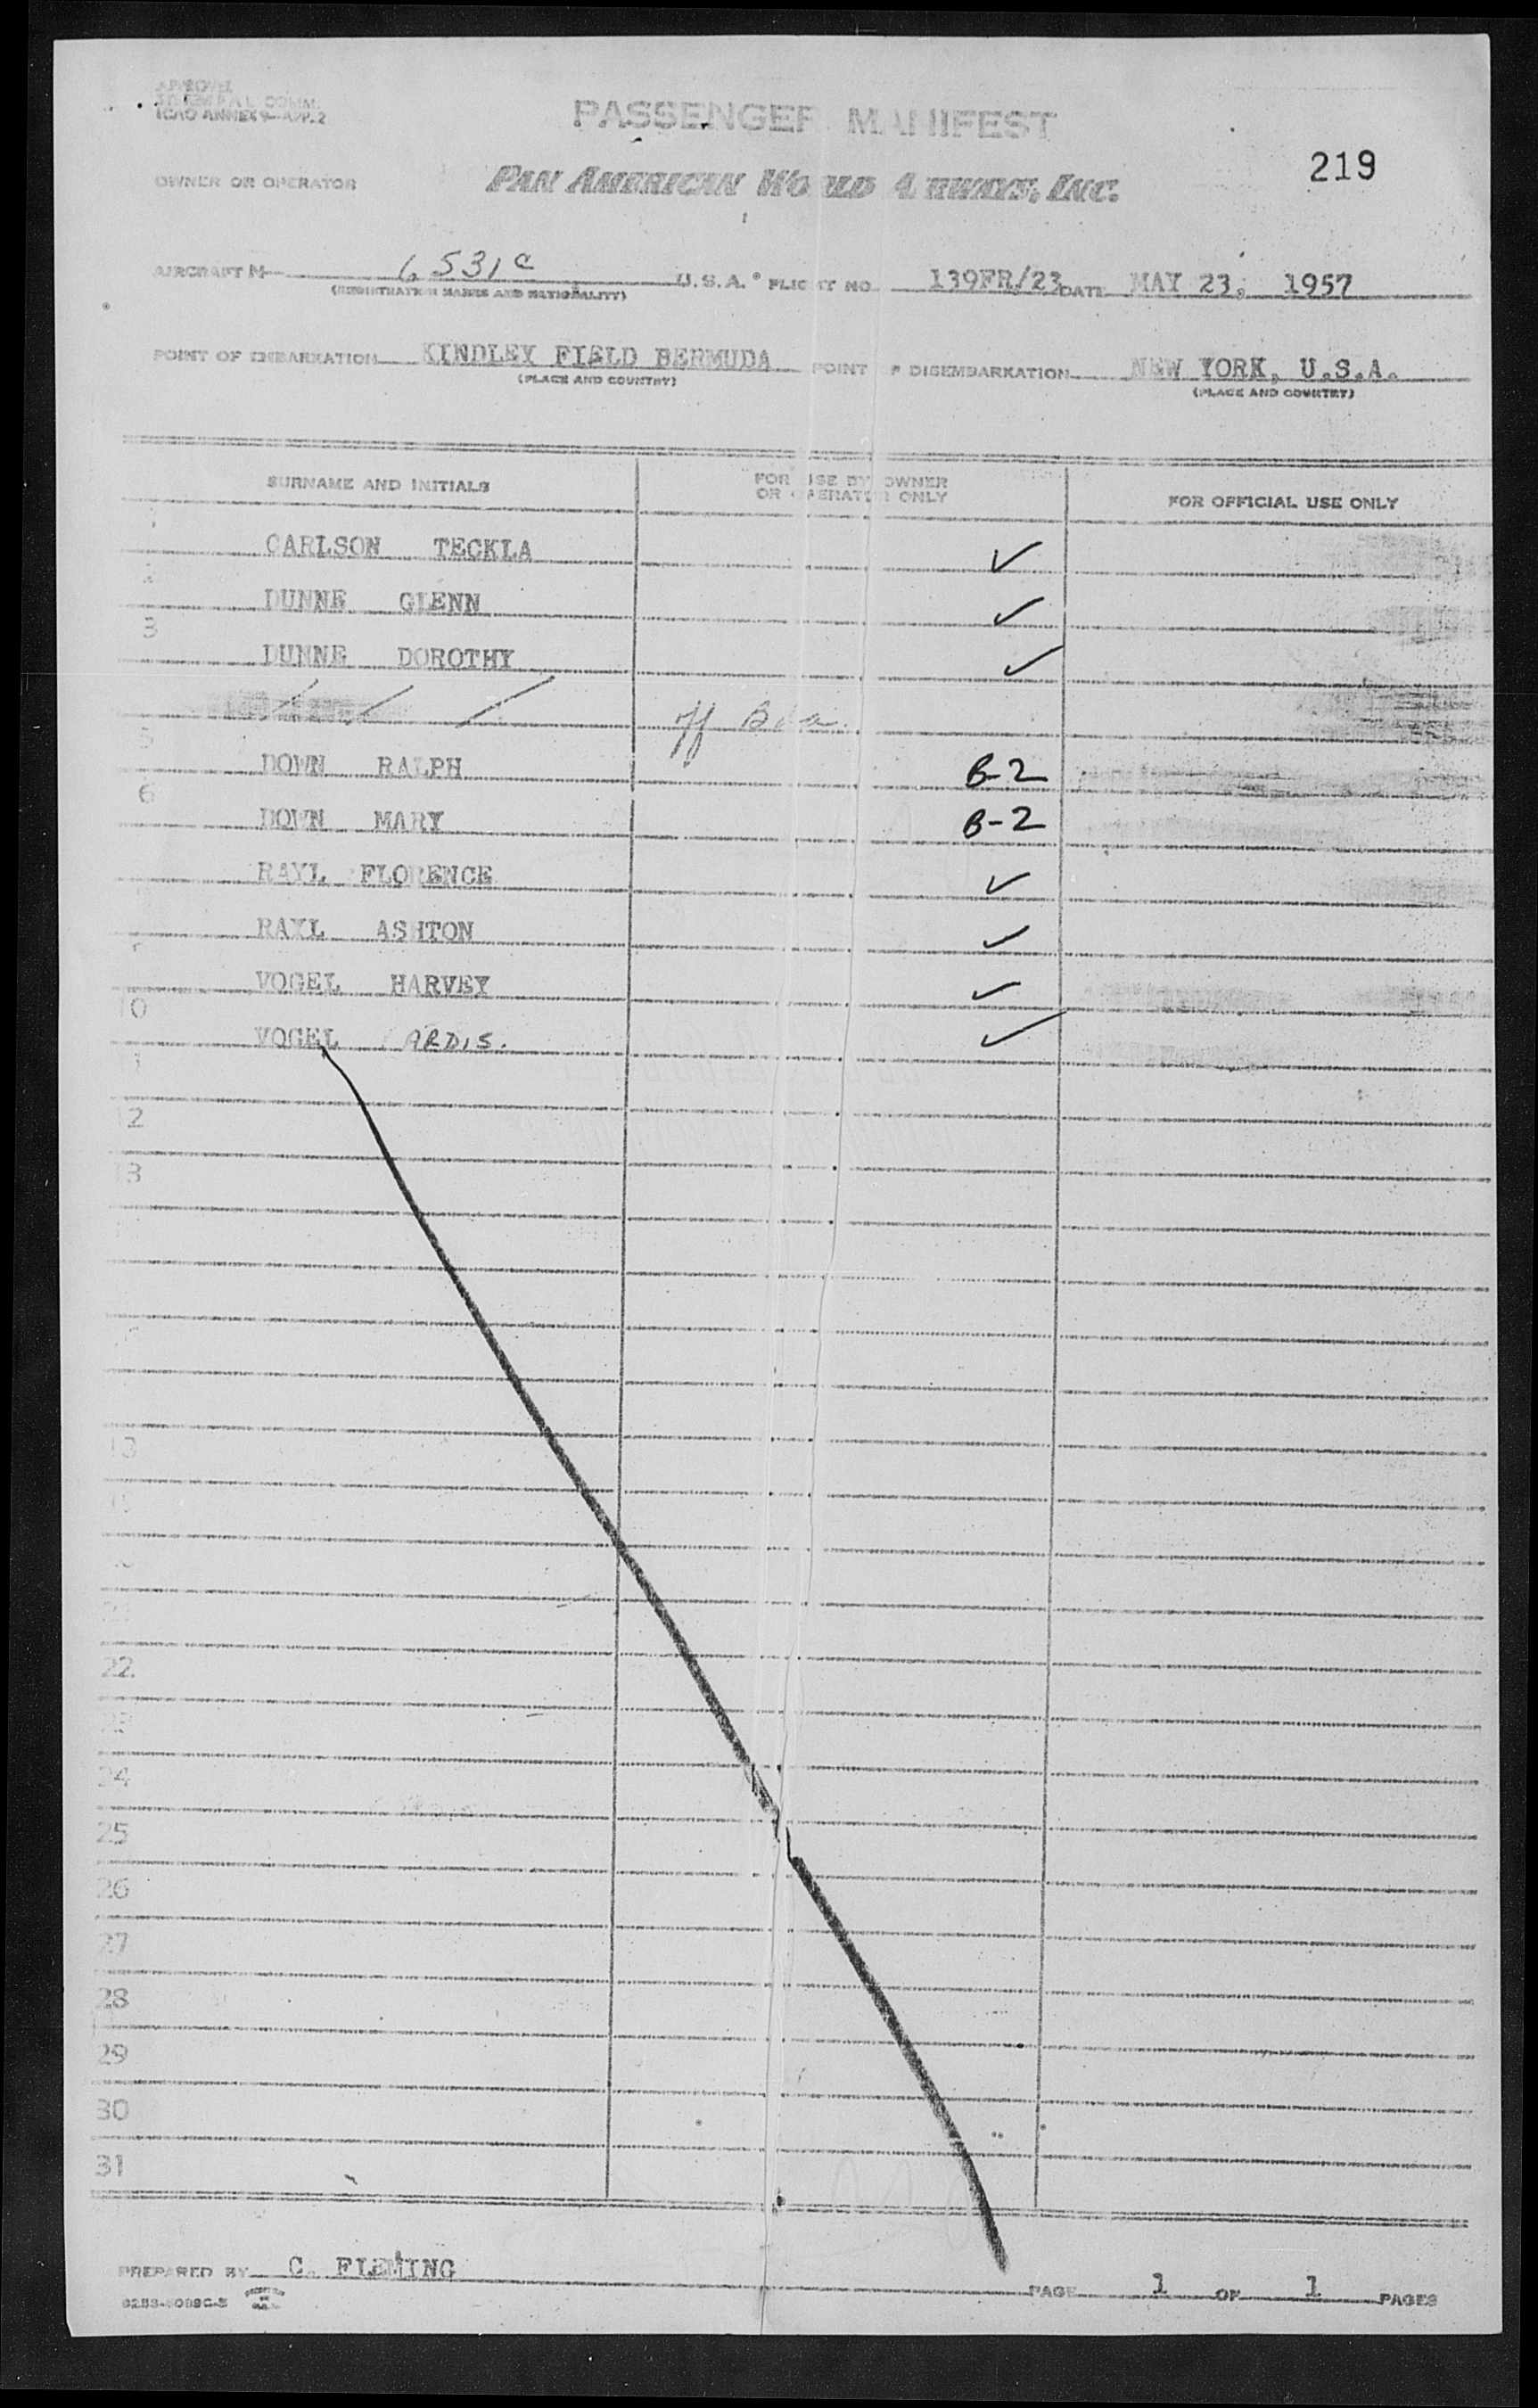 ICAO ANNEX 9-APP. 2
PASSENGER MANIFEST
219
OWNER OR OPERATOR PAN AMERICAN WORLD AIRWAYS, INC.
AIRCRAFT N 6531C U.S.A. FLIGHT NO. 139FR/23 DATE MAY 23, 1957
(REGISTRATION MARKS AND NATIONALITY)
POINT OF EMBARKATION KINDLEY FIELD BERMUDA POINT OF DISEMBARKATION NEW YORK, U.S.A.
(PLACE AND COUNTRY) (PLACE AND COUNTRY)
SURNAME AND INITIALS FOR USE BY OWNER OR OPERATOR ONLY FOR OFFICIAL USE ONLY
1 CARLSON TECKLA ✓
2 DUNNE GLENN ✓
3 DUNNE DOROTHY ✓
5 DOWN RALPH B-2
6 DOWN MARY B-2
RAYL FLORENCE ✓
RAYL ASHTON ✓
VOGEL HARVEY ✓
10 VOGEL ARDIS. ✓
1
12
13
18
19
22
23
24
25
26
27
28
29
30
31
PREPARED BY C. FLEMING
PAGE 1 OF 1 PAGES